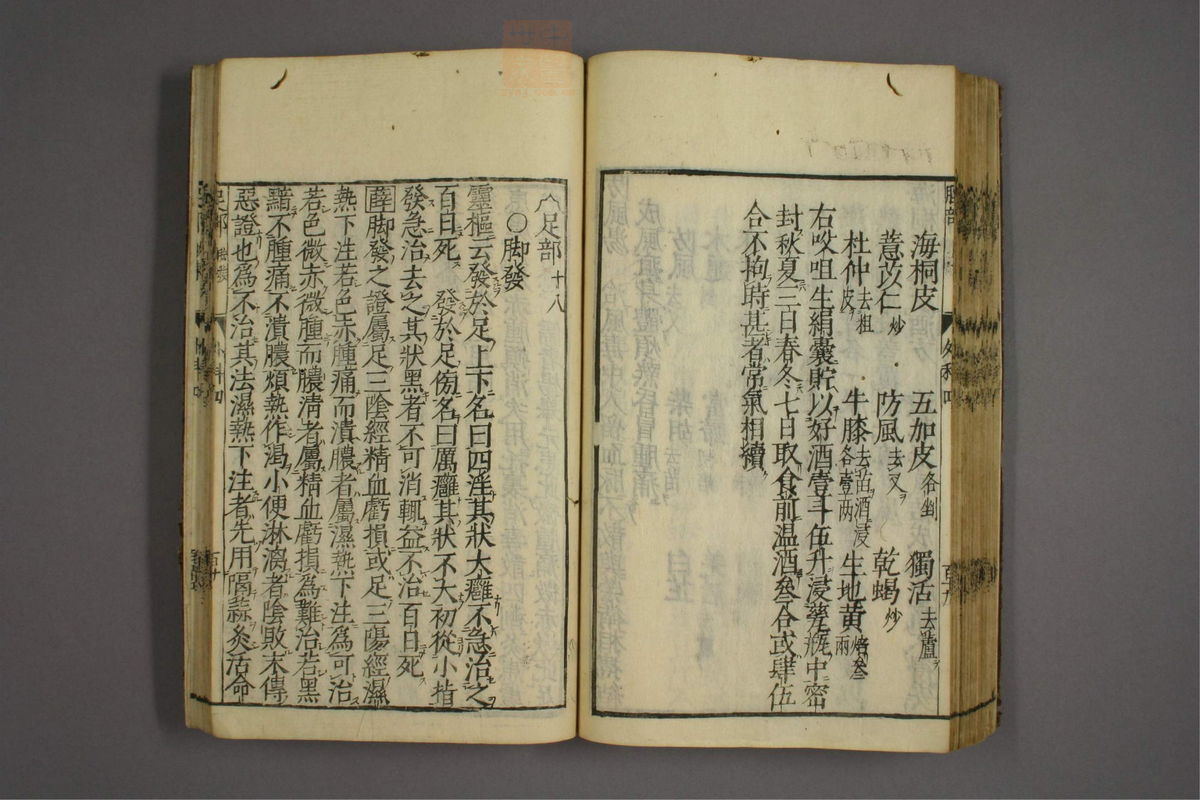 海桐皮　五加皮各剉　獨活去蘆
薏苡仁炒　防風去叉　乾蝎炒
杜仲去粗皮　牛膝去苗酒浸各壹两　生地黄焙叁兩
右㕮咀生絹囊貯以好酒壹斗伍升浸甕瓶中密
封秋夏三日春冬七日取食前温酒叄合或肆伍
合不拘時甚者常氣相續
足部十八
○脚發
靈樞云發於足上下名曰四淫其狀大癰不急治之
百日死　發於足傍名曰厲癰其狀不大初從小指
發急治去之其狀黑者不可消輒益不治百日死
薛脚發之證屬足三陰經精血虧損或足三陽經濕
熱下注若色赤腫痛而潰膿者屬濕熱下注為可治
若色微赤微腫而膿清者屬精血虧損為難治若黑
黯不腫痛不潰膿煩熱作渴小便淋漓者陰敗末傳
惡證也為不治其法濕熱下注者先用隔蒜灸活命